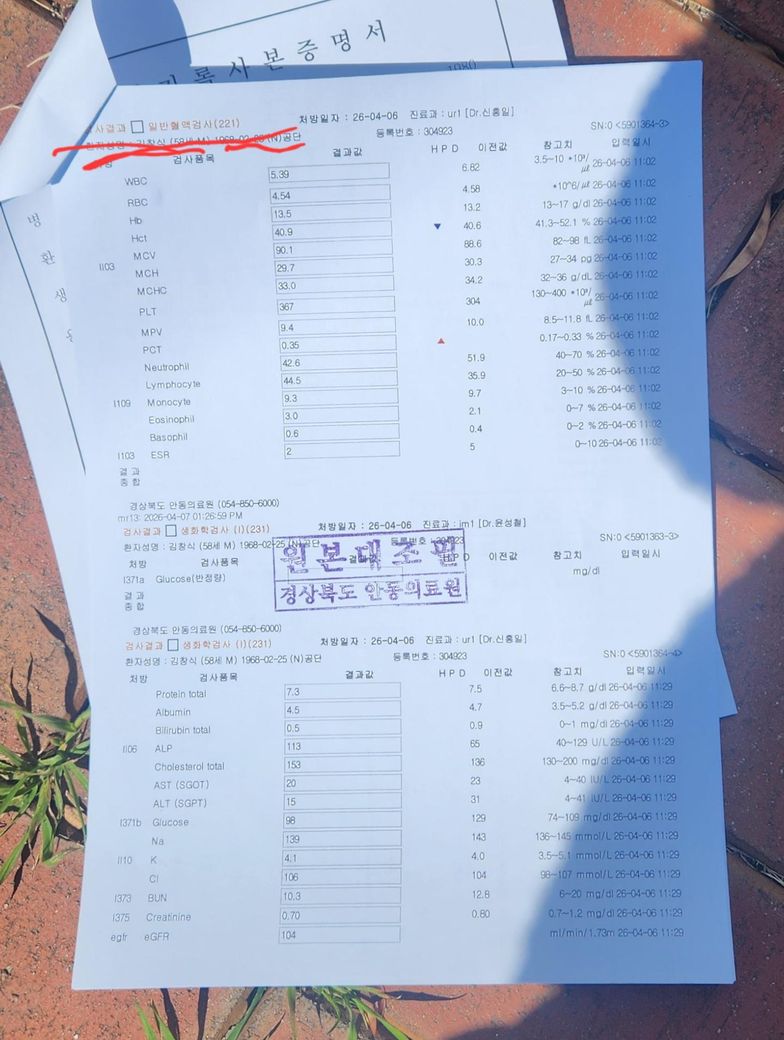 기록사본증명서
1980
병
환
생
검사결과 일반혈액검사(221) 처방일자 : 26-04-06 진료과 : ur1 [Dr.신홍일] SN:0 <5901364-3>
환자성명 : 김창식 (58세 M) 1968-02-25 (N)공단 등록번호 : 304923
처방 검사품목 결과값 H P D 이전값 참고치 입력일시
WBC 5.39 6.82 3.5~10 *10³/㎕ 26-04-06 11:02
RBC 4.54 4.58 *10^6/㎕ 26-04-06 11:02
Hb 13.5 13.2 13~17 g/dl 26-04-06 11:02
Hct 40.9 ▼ 40.6 41.3~52.1 % 26-04-06 11:02
MCV 90.1 88.6 82~98 fL 26-04-06 11:02
II03 MCH 29.7 30.3 27~34 pg 26-04-06 11:02
MCHC 33.0 34.2 32~36 g/dL 26-04-06 11:02
PLT 367 304 130~400 *10³/㎕ 26-04-06 11:02
MPV 9.4 10.0 8.5~11.8 fL 26-04-06 11:02
PCT 0.35 ▲ 0.17~0.33 % 26-04-06 11:02
Neutrophil 42.6 51.9 40~70 % 26-04-06 11:02
Lymphocyte 44.5 35.9 20~50 % 26-04-06 11:02
I109 Monocyte 9.3 9.7 3~10 % 26-04-06 11:02
Eosinophil 3.0 2.1 0~7 % 26-04-06 11:02
Basophil 0.6 0.4 0~2 % 26-04-06 11:02
I103 ESR 2 5 0~10 26-04-06 11:02
결 과
종 합
경상북도 안동의료원 (054-850-6000)
mr13: 2026-04-07 01:26:59 PM
검사결과 생화학검사 (I)(231) 처방일자 : 26-04-06 진료과 : im1 [Dr.윤성철] SN:0 <5901363-3>
환자성명 : 김창식 (58세 M) 1968-02-25 (N)공단 등록번호 : 304923
처방 검사품목 결과값 H P D 이전값 참고치 입력일시
I371a Glucose(반정량) mg/dl
결 과
종 합
원본대조필
경상북도 안동의료원
경상북도 안동의료원 (054-850-6000)
검사결과 생화학검사 (I)(231) 처방일자 : 26-04-06 진료과 : ur1 [Dr.신홍일] SN:0 <5901364-4>
환자성명 : 김창식 (58세 M) 1968-02-25 (N)공단 등록번호 : 304923
처방 검사품목 결과값 H P D 이전값 참고치 입력일시
Protein total 7.3 7.5 6.6~8.7 g/dl 26-04-06 11:29
Albumin 4.5 4.7 3.5~5.2 g/dl 26-04-06 11:29
Bilirubin total 0.5 0.9 0~1 mg/dl 26-04-06 11:29
II06 ALP 113 65 40~129 U/L 26-04-06 11:29
Cholesterol total 153 136 130~200 mg/dl 26-04-06 11:29
AST (SGOT) 20 23 4~40 IU/L 26-04-06 11:29
ALT (SGPT) 15 31 4~41 IU/L 26-04-06 11:29
I371b Glucose 98 129 74~109 mg/dl 26-04-06 11:29
Na 139 143 136~145 mmol/L 26-04-06 11:29
II10 K 4.1 4.0 3.5~5.1 mmol/L 26-04-06 11:29
Cl 106 104 98~107 mmol/L 26-04-06 11:29
I373 BUN 10.3 12.8 6~20 mg/dl 26-04-06 11:29
I375 Creatinine 0.70 0.80 0.7~1.2 mg/dl 26-04-06 11:29
egfr eGFR 104 ml/min/1.73m 26-04-06 11:29